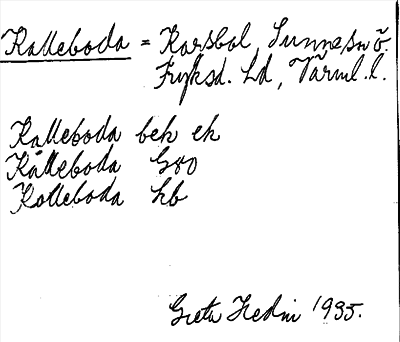 Kalleboda = Korsbol, Sunne sn ö.
Fryksd. hd, Värml. l.
Kalleboda bek ek
Kålleboda Gso
Kolleboda hb
Greta Hedin 1935.